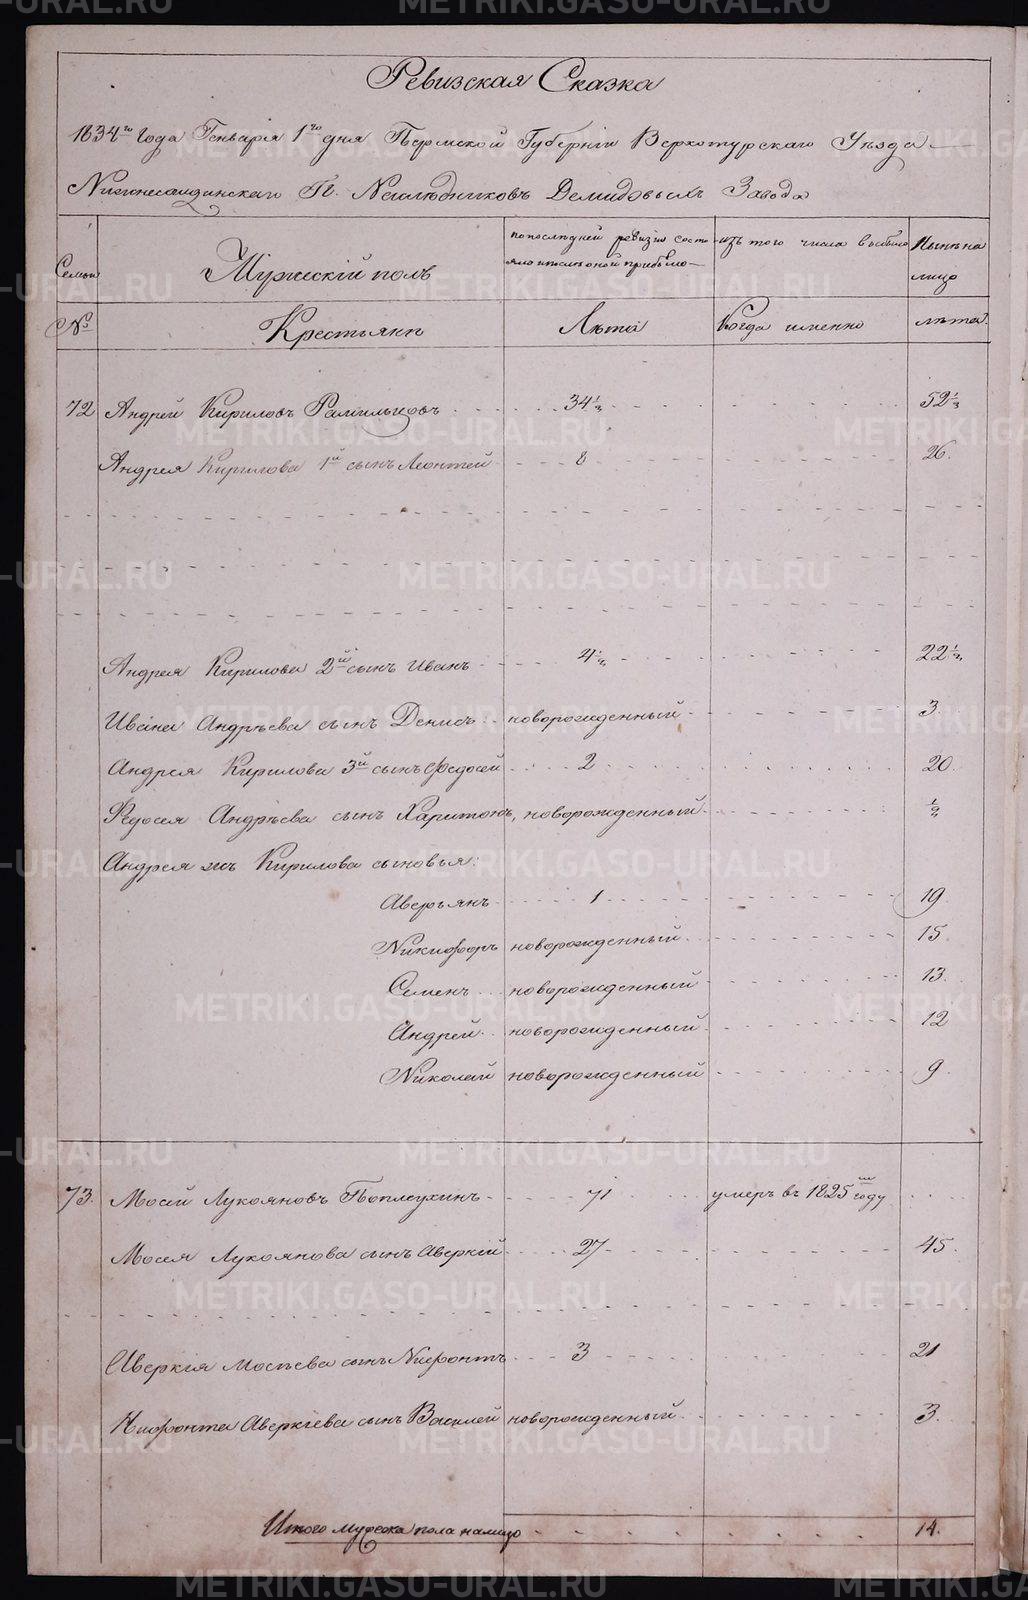 Ревизская Сказка
1834го Года Генваря 1го дня Пермской Губернiи Верхотурскаго Уезда
Нижнесалдинскаго Г. Наследниковъ Демидовыхъ Завода
Семьи
Мужескiй полъ
по последней ревизiи состо-
яло и после оной прибыло
изъ того числа выбыло
Ныне на
лицо
№
Крестьяне
Лета
Когда именно
лета
72 Андрей Кириловъ 34½ 52½
Андрея Кирилова 1й сынъ Леонтей 8 26.
Андрея Кирилова 2й сынъ Иванъ 4½ 22½
Ивана Андреева сынъ Денисъ новорожденный 3
Андрея Кирилова 3й сынъ Федосей 2 20
Федосея Андреева сынъ Харитонъ, новорожденный ½
Андрея жъ Кирилова сыновья:
Аверьянъ 1 19
Никифоръ новорожденный 15
Семенъ новорожденный 13.
Андрей новорожденный 12
Николай новорожденный 9
73. Мосей Лукояновъ Поплеухинъ 71 умеръ въ 1825м году
Мосея Лукоянова сынъ Аверкiй 27 45.
Аверкiя Мосеева сынъ Нифонтъ 3 21
Нифонта Аверкiева сынъ Василей новорожденный 3.
Итого мужеска пола налицо 14.
METRIKI.GASO-URAL.RU